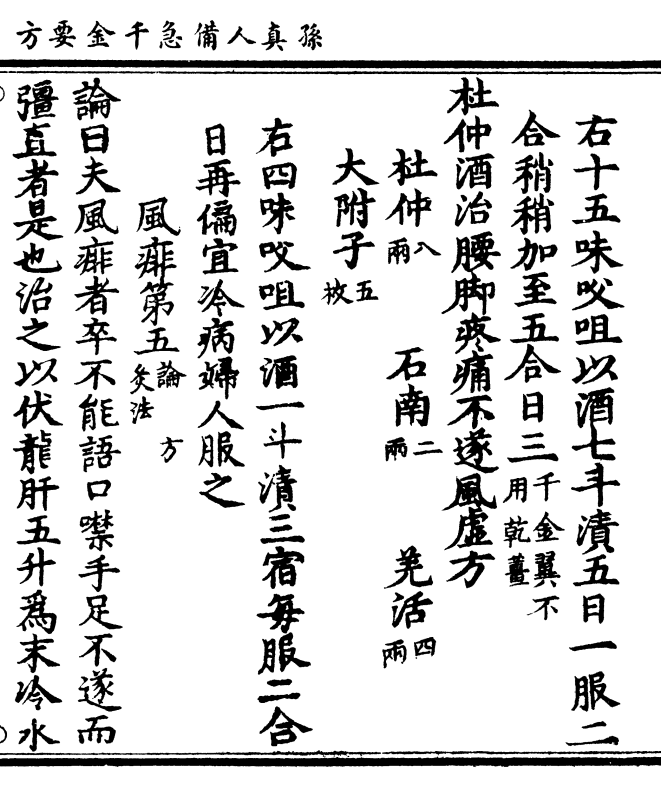 孫真人備急千金要方
右十五味㕮咀以酒七斗漬五日一服二
合稍稍加至五合日三千金翼不用乾薑
杜仲酒治腰脚疼痛不遂風虛方
杜仲八兩 石南二兩 羌活四兩
大附子五枚
右四味㕮咀以酒一斗漬三宿每服二合
日再偏宜冷病婦人服之
風痱第五論方灸法
論曰夫風痱者卒不能語口噤手足不遂而
彊直者是也治之以伏龍肝五升爲末冷水